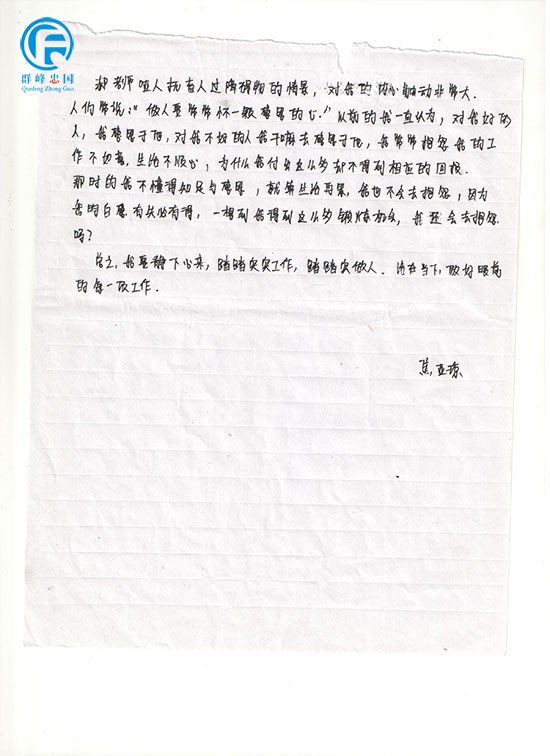 群峰忠国
Qunfeng Zhong Guo
和老师 人抗百人过障碍物的情景，对我的内心触动非常大.
人们常说："做人要常常怀一颗感恩的心." 以前的我一直认为，对我好的
人，我感恩于他，对我不好的人我干嘛去感恩于他，我常常抱怨我的工
作不如意，生活不顺心，为什么我付出这么多却不得到相应的回报.
那时的我不懂得知足与感恩，就算生活再累，我也不会去抱怨，因为
我明白 有失必有得，一想到我得到这么多锻炼机会，我还会去抱怨
吗？
总之，我要静下心来，踏踏实实工作，踏踏实实做人. 活在当下，做好眼前
的每一项工作.
焦亚琼